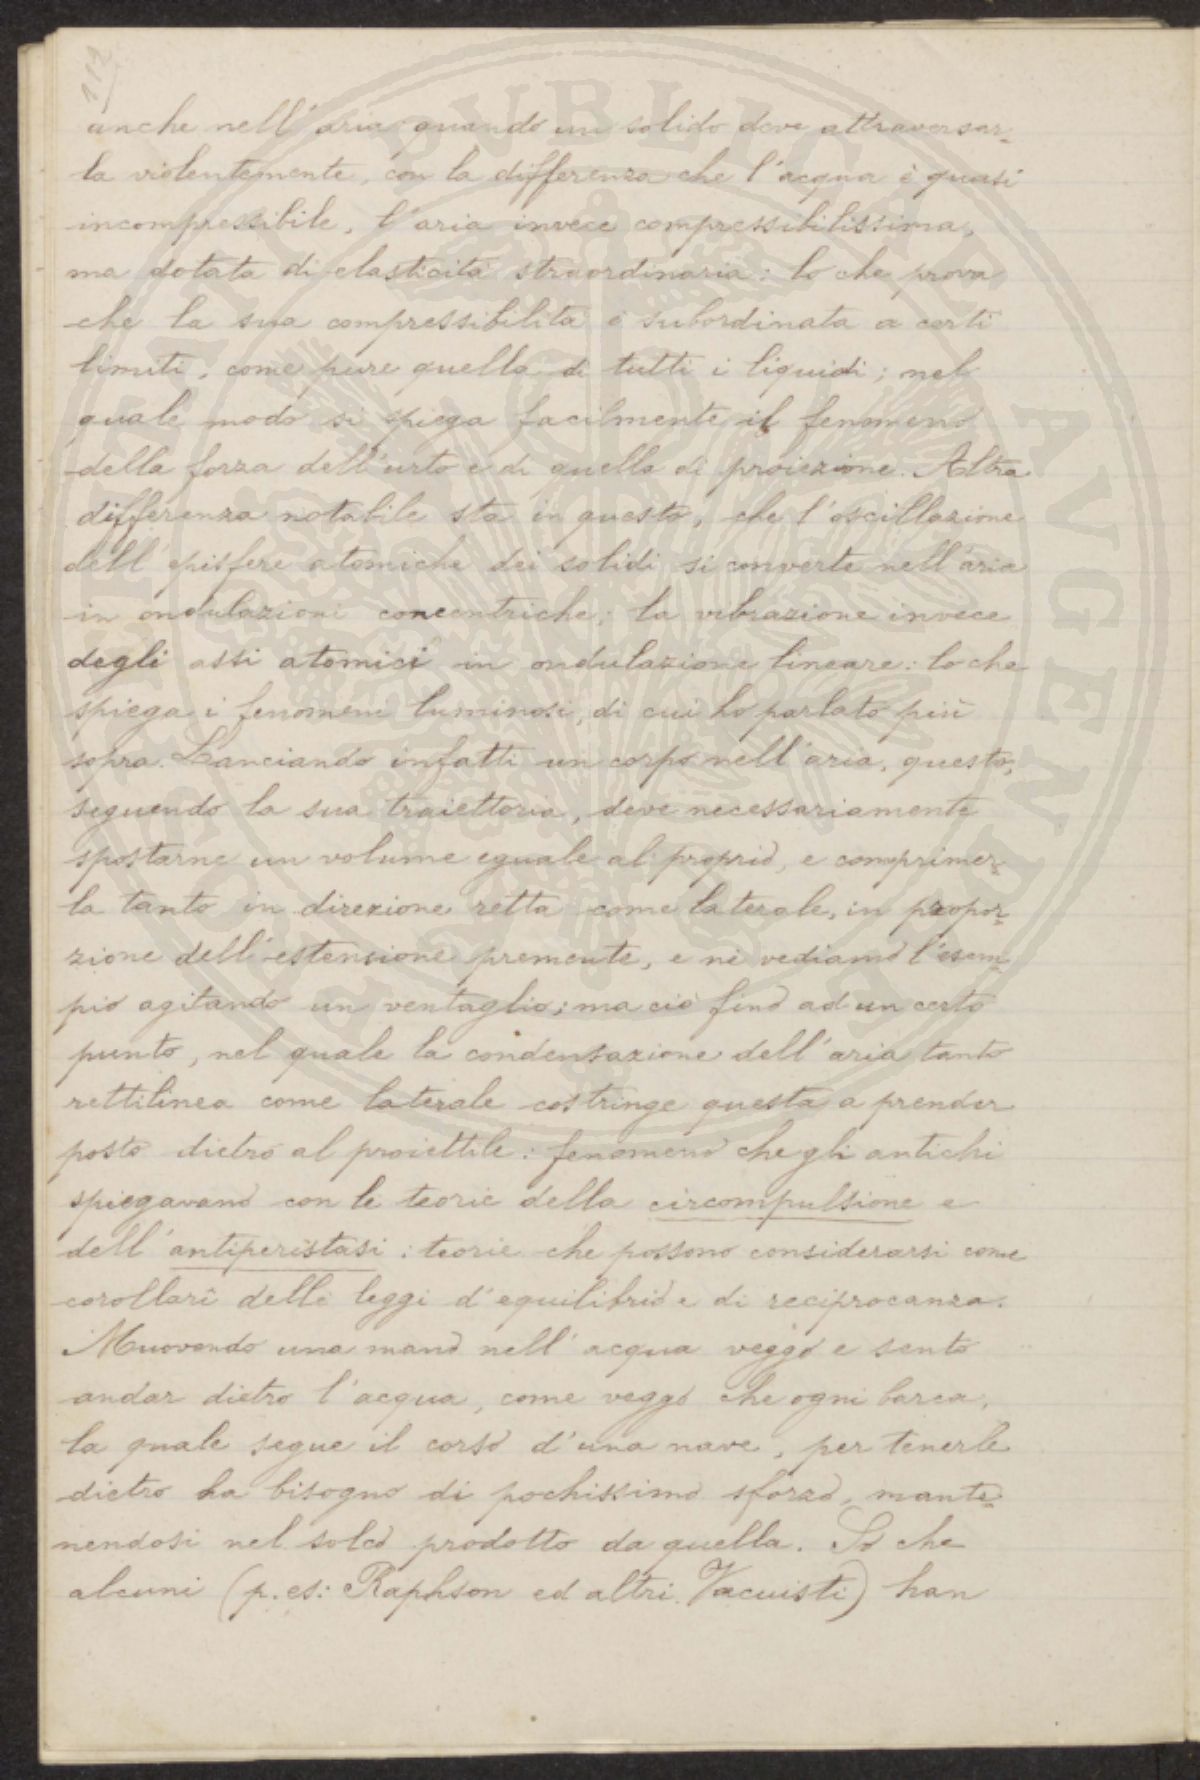 112
anche nell'aria quando un solido deve attraversar-
la violentemente, con la differenza che l'acqua è quasi
incompressibile, l'aria invece compressibilissima,
ma dotata di elasticità straordinaria: lo che prova
che la sua compressibilità è subordinata a certi
limiti, come pure quella di tutti i liquidi; nel
quale modo si spiega facilmente il fenomeno
della forza dell'urto e di quella di proiezione. Altra
differenza notabile sta in questo, che l'oscillazione
dell'episfere atomiche dei solidi si converte nell'aria
in ondulazioni concentriche; la vibrazione invece
degli assi atomici in ondulazione lineare: lo che
spiega i fenomeni luminosi, di cui ho parlato più
sopra. Lanciando infatti un corpo nell'aria, questo,
seguendo la sua traiettoria, deve necessariamente
spostarne un volume eguale al proprio, e comprimer-
la tanto in direzione retta come laterale, in propor-
zione dell'estensione premente, e ne vediamo l'esem-
pio agitando un ventaglio; ma ciò fino ad un certo
punto, nel quale la condensazione dell'aria tanto
rettilinea come laterale costringe questa a prender
posto dietro al proiettile: fenomeno che gli antichi
spiegavano con le teorie della circompulsione e
dell'antiperistasi: teorie che possono considerarsi come
corollarî delle leggi d'equilibrio e di reciprocanza.
Muovendo una mano nell'acqua veggo e sento
andar dietro l'acqua, come veggo che ogni barca,
la quale segue il corso d'una nave, per tenerle
dietro ha bisogno di pochissimo sforzo, mante-
nendosi nel solco prodotto da quella. So che
alcuni (p. es: Raphson ed altri Vacuisti) han